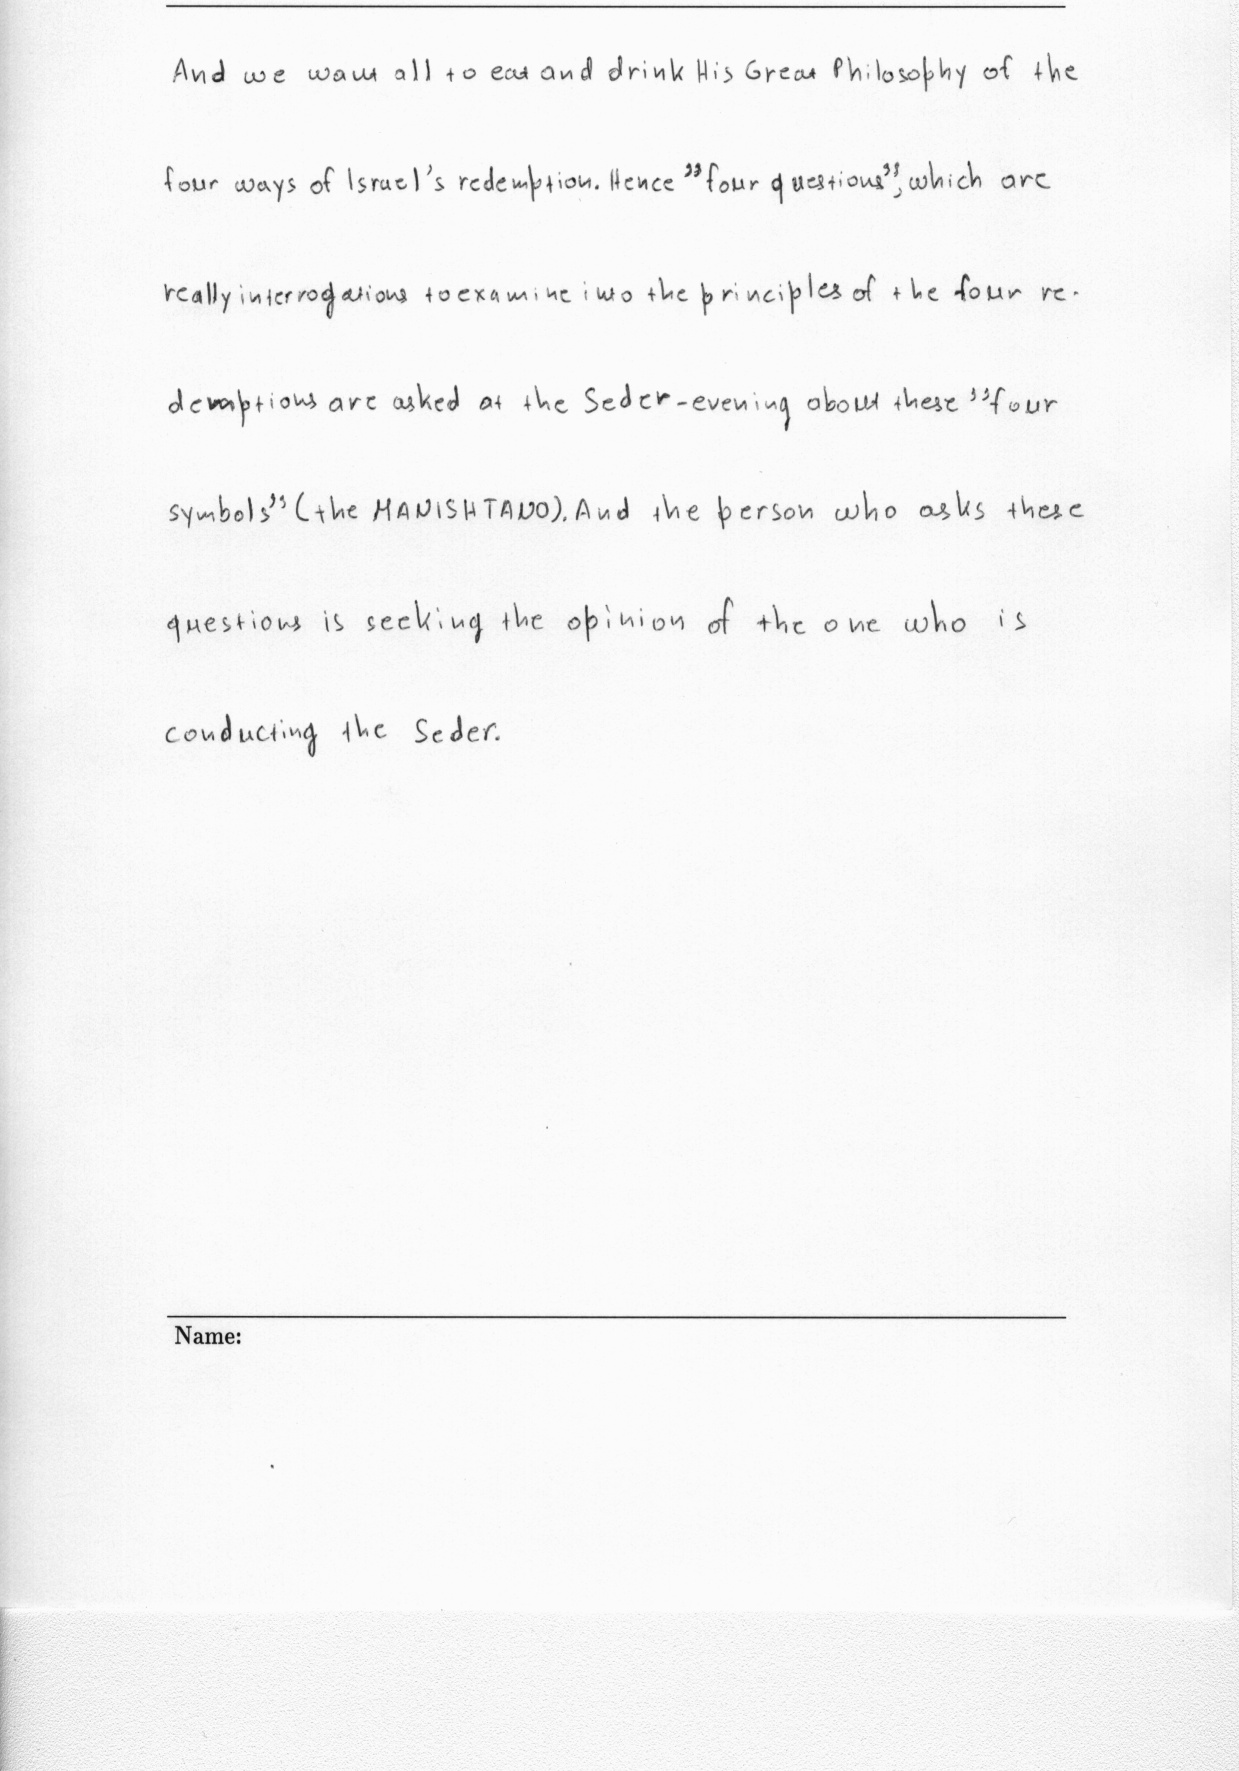 And we want all to eat and drink His Great Philosophy of the
four ways of Israel's redemption. Hence "four questions", which are
really interrogations to examine into the principles of the four re-
demptions are asked at the Seder-evening about these "four
symbols" (the MANISHTANO). And the person who asks these
questions is seeking the opinion of the one who is
conducting the Seder.
Name: